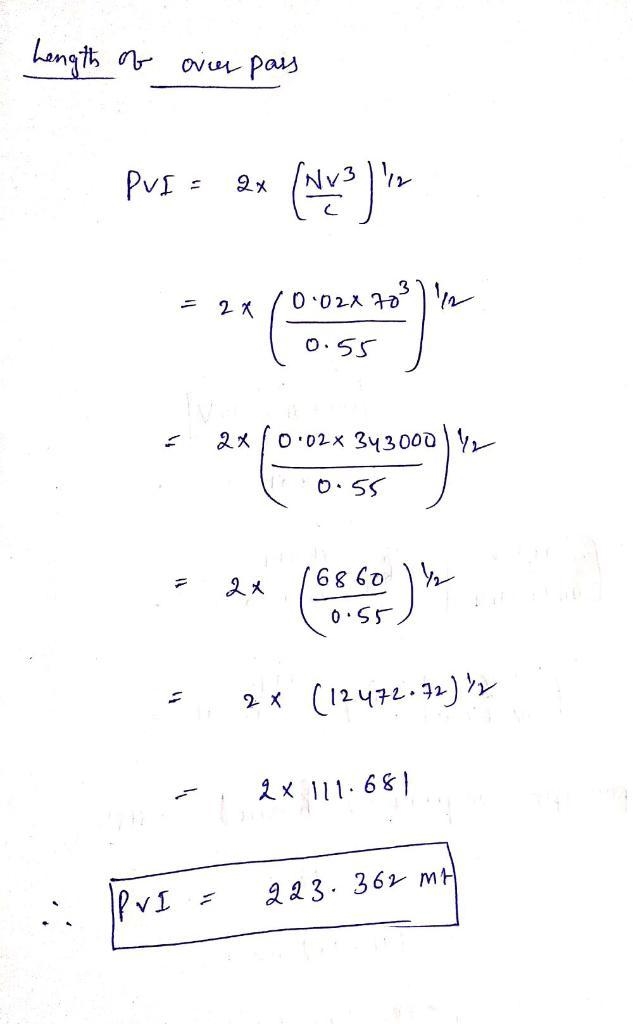 Length of over pass
PVI = 2x (NV³/C)^1/2
= 2x (0.02x 70³/0.55)^1/2
= 2x (0.02x 343000/0.55)^1/2
= 2x (6860/0.55)^1/2
= 2x (12472.72)^1/2
= 2x 111.681
∴ PVI = 223.362 mt